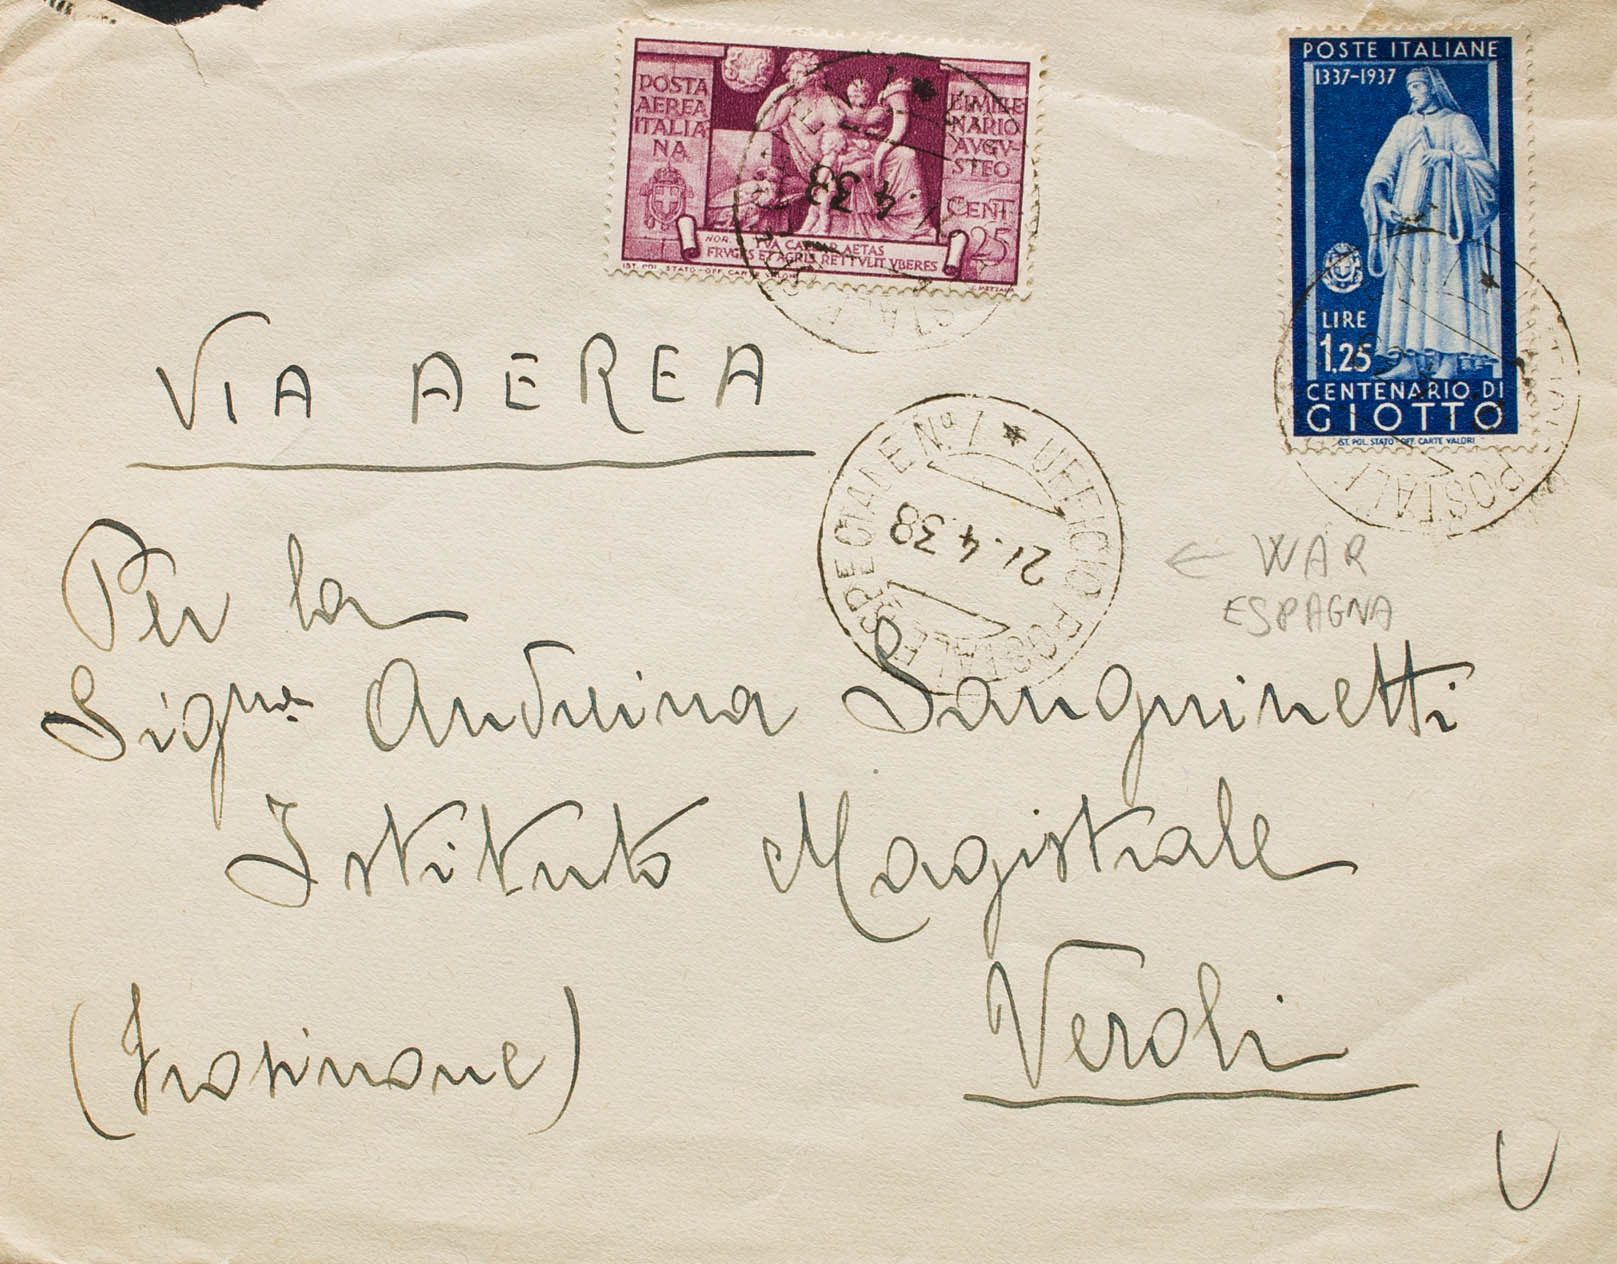 POSTA
AEREA
ITALIA
NA
BIMILLE
NARIO
AVGV-
STEO
CENT.
25
TVA CAESAR AETAS
FRVGES ET AGRIS RETTVLIT VBERES
IST. POL. STATO-OFF. CARTE VALORI
4.38
POSTE ITALIANE
1337-1937
LIRE
1,25
CENTENARIO DI
GIOTTO
IST. POL. STATO-OFF. CARTE VALORI
POSTALE
VIA AEREA
UFFICIO POSTALE SPECIALE No 1
21.4.38
← WAR
ESPAGNA
Per la
Signa Andreina Sanguinetti
Istituto Magistrale
Veroli
(Frosinone)